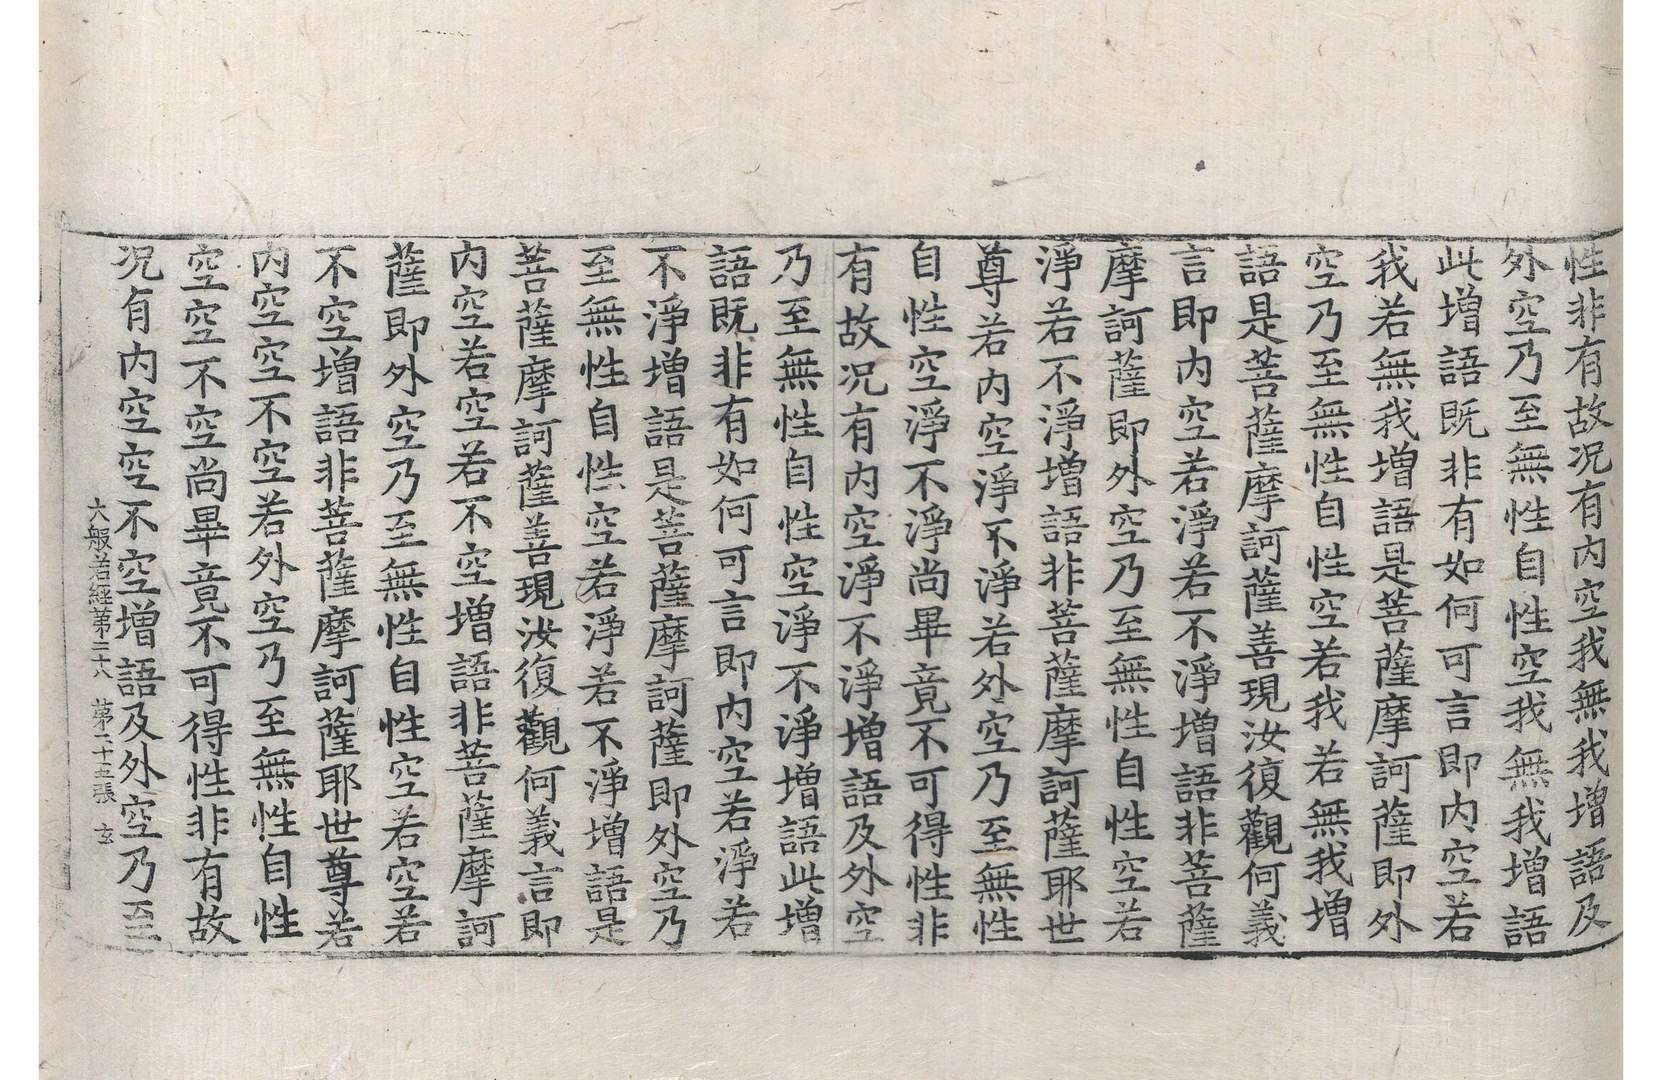 性非有故况有内空我無我增語及
外空乃至無性自性空我無我增語
此增語既非有如何可言即内空若
我若無我增語是菩薩摩訶薩即外
空乃至無性自性空若我若無我增
語是菩薩摩訶薩善現汝復觀何義
言即内空若淨若不淨增語非菩薩
摩訶薩即外空乃至無性自性空若
淨若不淨增語非菩薩摩訶薩耶世
尊若内空淨不淨若外空乃至無性
自性空淨不淨尚畢竟不可得性非
有故况有内空淨不淨增語及外空
乃至無性自性空淨不淨增語此增
語既非有如何可言即内空若淨若
不淨增語是菩薩摩訶薩即外空乃
至無性自性空若淨若不淨增語是
菩薩摩訶薩善現汝復觀何義言即
内空若空若不空增語非菩薩摩訶
薩即外空乃至無性自性空若空若
不空增語非菩薩摩訶薩耶世尊若
内空空不空若外空乃至無性自性
空空不空尚畢竟不可得性非有故
况有内空空不空增語及外空乃至
大般若經第二十八 第二十五張 玄